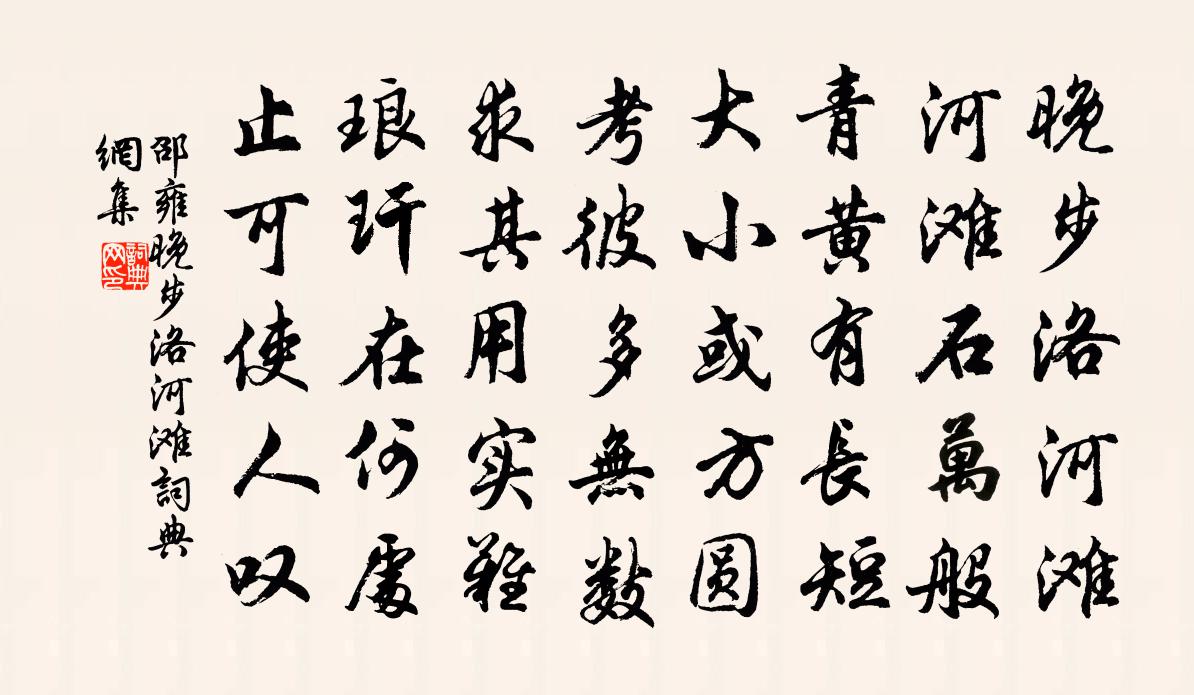 晚步洛河滩
河滩石萬般
青黄有長短
大小或方圆
考彼多無数
求其用实難
琅玕在何處
止可使人叹
邵雍晚步洛河滩詞典
網集
詞典
网印